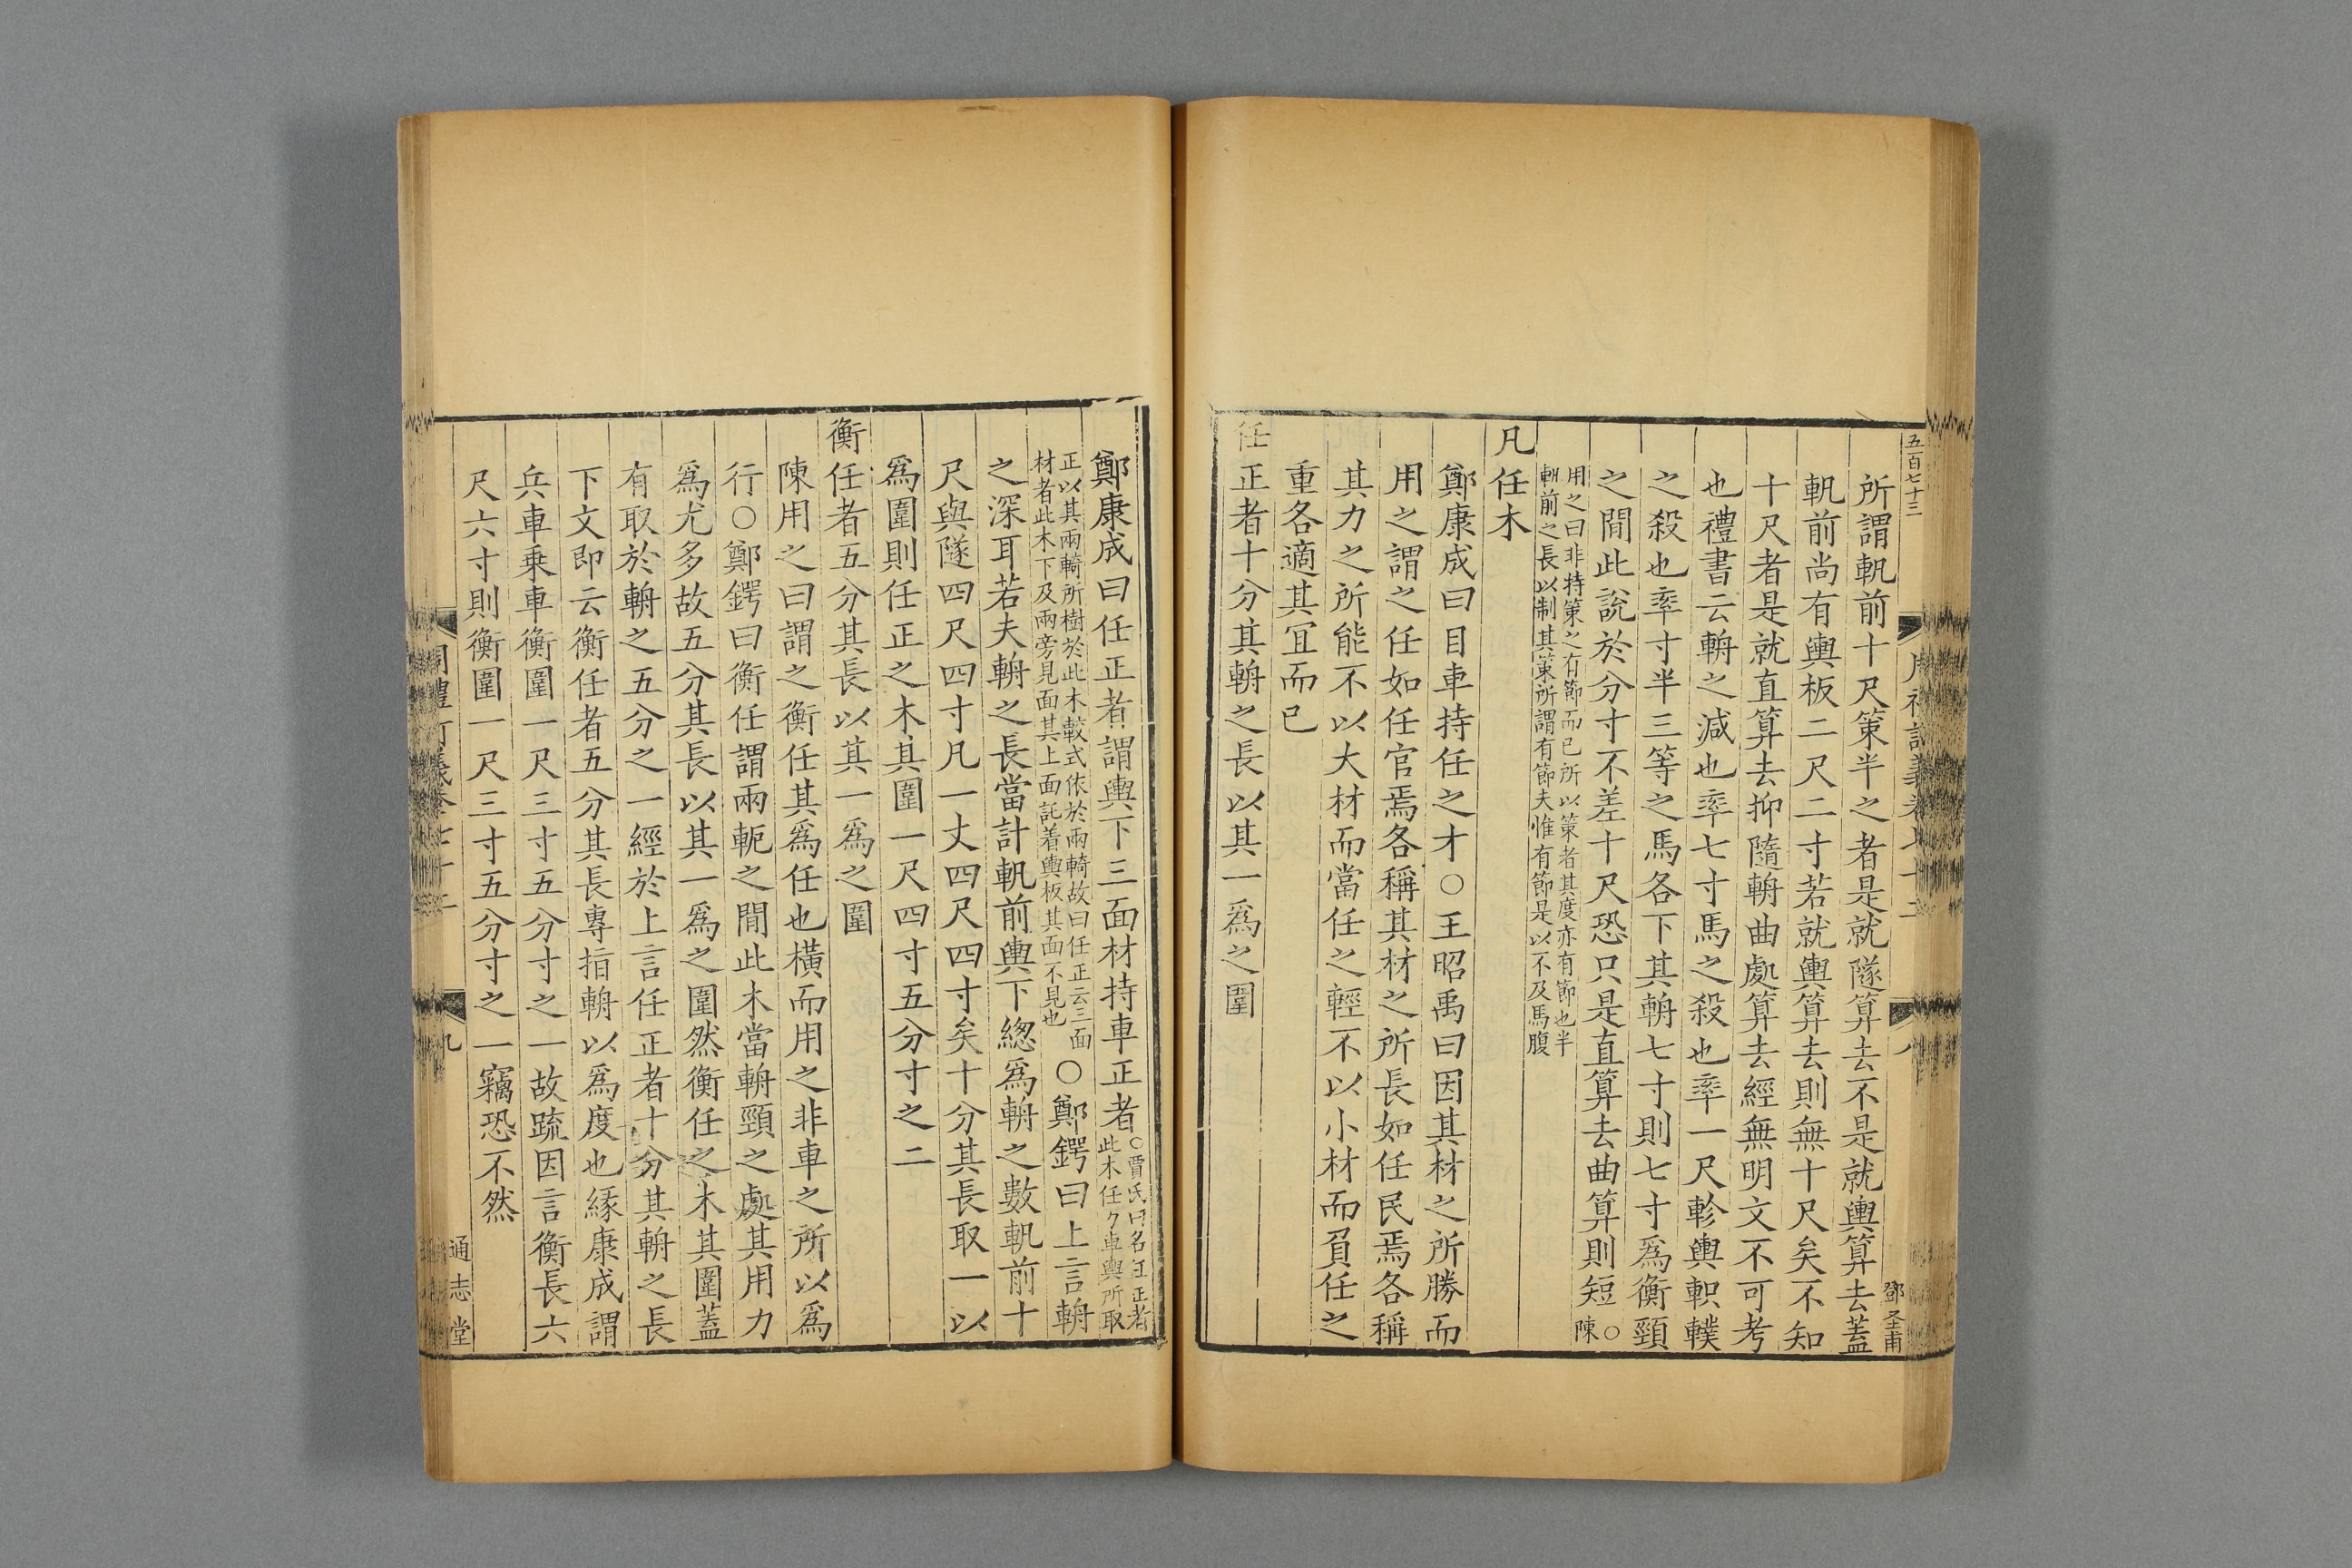 五百七十三
所謂軓前十尺策半之者是就隧算去不是就輿算去蓋
軓前尚有輿板二尺二寸若就輿算去則無十尺矣不知
十尺者是就直算去抑隨輈曲處算去經無明文不可考
也禮書云輈之減也率七寸馬之殺也率一尺軫輿軹轐
之殺也率寸半三等之馬各下其輈七寸則七寸爲衡頸
之間此說於分寸不差十尺恐只是直算去曲算則短○陳
用之曰非持策之有節而已所以策者其度亦有節也半
輈前之長以制其策所謂有節夫惟有節是以不及馬腹
凡任木
鄭康成曰目車持任之才○王昭禹曰因其材之所勝而
用之謂之任如任官焉各稱其材之所長如任民焉各稱
其力之所能不以大材而當任之輕不以小材而負任之
重各適其宜而已
任正者十分其輈之長以其一爲之圍
鄧圣甫
鄭康成曰任正者謂輿下三面材持車正者○賈氏曰名任正者
此木任力車輿所取
正以其兩輢所樹於此木較式依於兩輢故曰任正云三面
材者此木下及兩旁見面其上面託着輿板其面不見也
○鄭鍔曰上言輈
之深耳若夫輈之長當計軓前輿下緫爲輈之數軓前十
尺與隧四尺四寸凡一丈四尺四寸矣十分其長取一以
爲圍則任正之木其圍一尺四寸五分寸之二
衡任者五分其長以其一爲之圍
陳用之曰謂之衡任其爲任也橫而用之非車之所以爲
行○鄭鍔曰衡任謂兩軛之間此木當輈頸之處其用力
爲尤多故五分其長以其一爲之圍然衡任之木其圍蓋
有取於輈之五分之一經於上言任正者十分其輈之長
下文即云衡任者五分其長專指輈以爲度也緣康成謂
兵車乗車衡圍一尺三寸五分寸之一故疏因言衡長六
尺六寸則衡圍一尺三寸五分寸之一竊恐不然
九
通志堂